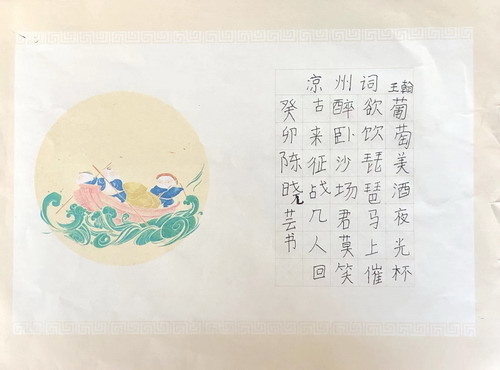 凉州词 王翰
葡萄美酒夜光杯
欲饮琵琶马上催
醉卧沙场君莫笑
古来征战几人回
癸卯陈晓芸书